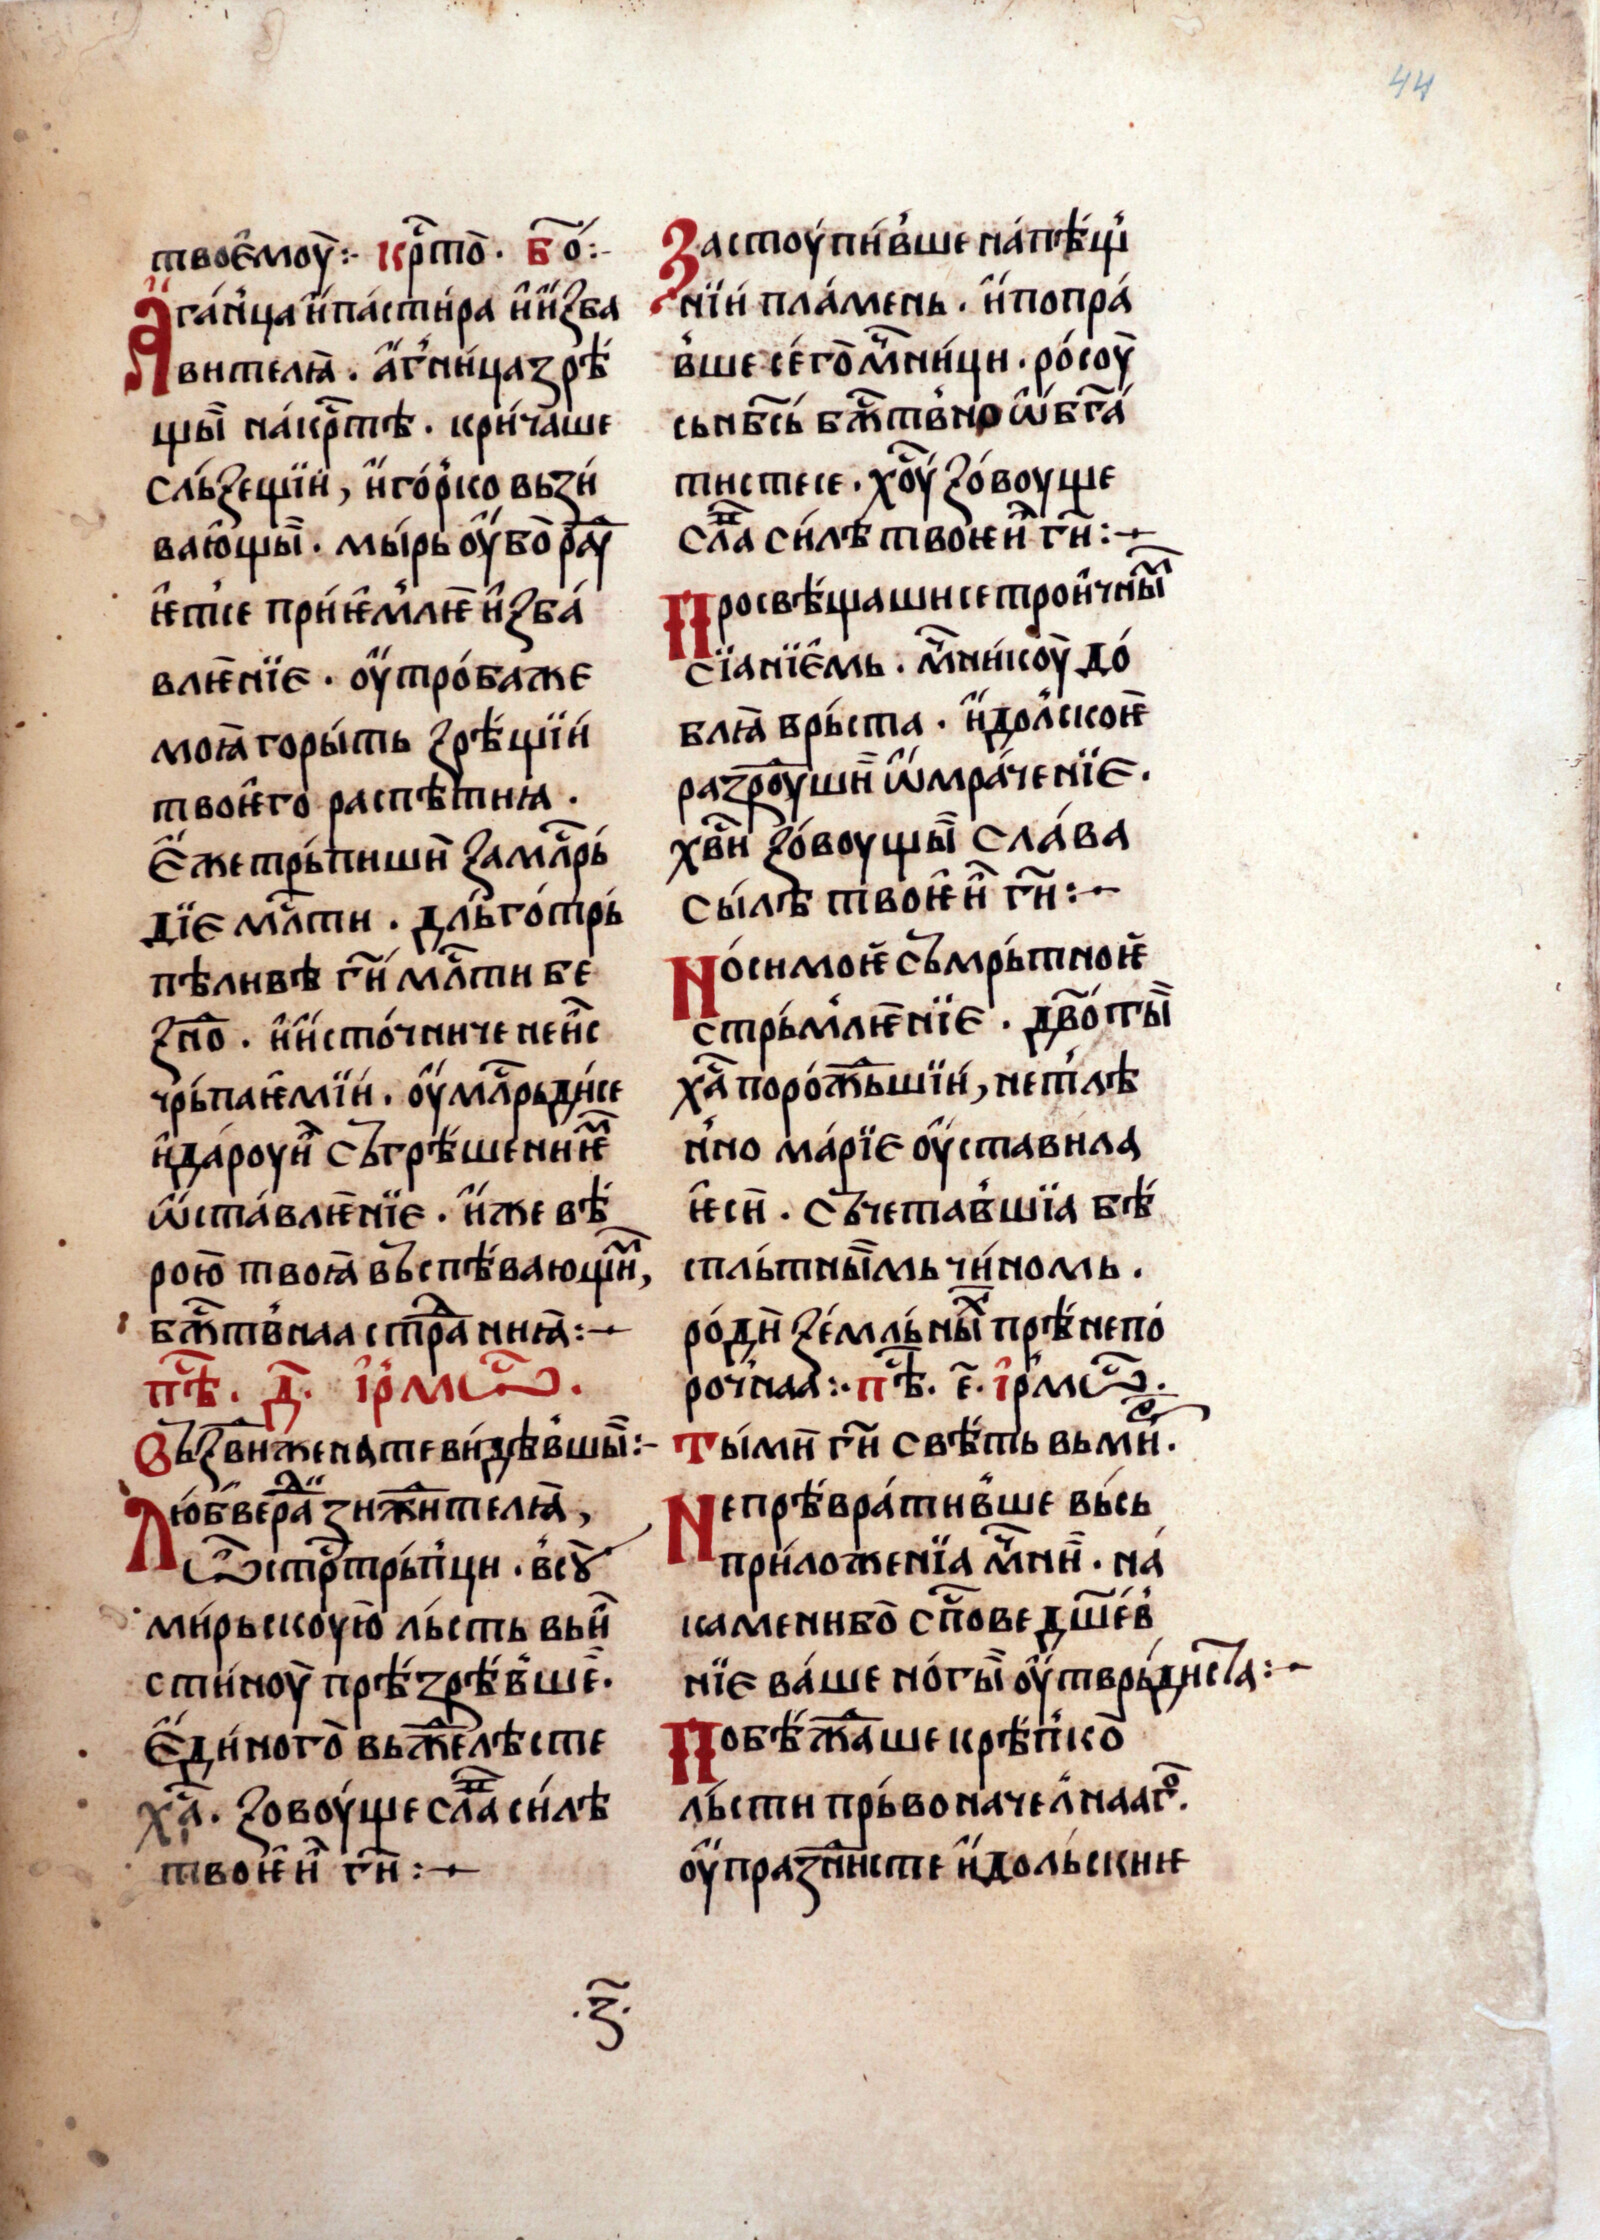 44
твоѐмоу҄:· Кр҇то҄. Бо҄:·
Аган҆ца и҆ пастира и҆ и҆зба
вителꙗ. а҆г҆ница зрѣ́
щы́ на кр҇тѣ. кричаше
сльꙁещїи, и҆ го́р҆ко вьзи
ваю҆щы́. мы́рь оу҆бо҄ раꙋ
ѥ҆т҆се приѥ҆м҆лѥ и҆зба́
влѥнїє. оу҆тро́ба же
моꙗ горы́ть ꙁрѣ́щїи
твоѥ҆го распѣтиꙗ.
Є҆же трьпиши ꙁа мл҇рь
дїє мл҇ти. дльго́трь
пѣливѣ г҃и мл҇ти бе
ꙁно. и҆ и҆сто́чниче неи҆с
чрьпаѥ҆мїи. оу҆мл҇рьди се
и҆ да́роуи съгрѣ́шениѥⷨ
ѿста́влѥнїє. и҆же вѣ́
рою҄ твоꙗ въспѣ́вающиⷨ,
бж҇тв҆наа страⷣниꙗ:·
пѣⷭ. д҃. і҆рмѡⷭ.
Въꙁвиⷤжена те ви́дѣв҆шы:·
Любве раⷣи зижⷣителꙗ,
ѡⷭ стрⷭотрьп҆ци. в҆соу
ми́рьскоую҄ льсть вьи
сти́ноу҄ прѣ́зрѣв҆ше.
Є҆ди́ного҄ вьжⷣелѣсте
х҇а. ꙁовоу́ще слⷡа си́лѣ
твоѥ҆и г҃и:·
Застоупи́в҆ше на пѣ́щ҆
нїи пла́мень. и҆ попра́
в҆ше сего҄ м҇ници. ро́соу҄
сьнб҇сь бж҇тв҆но ѡ҆бг҇а́
тисте се. х҇оу ꙁо́воуще
слⷡа си́лѣ твоѥи г҃и:·
Просвѣ́щаши се трои҆чныⷨ
сїанїѐмь. м҇нику҄ до́
блꙗ врьста. и҆дол҆скоѥ
разроу́ши ѡ҆мра́ченїє.
х҇ви ꙁо́воущы сла́ва
сы́лѣ твоѥ҆и г҃и:·
Носи моѥ съмрьтноѥ
стрьм҆лѥнїє. дв҃о ты
х҇а поро́жⷣьшїи, нет҆лѣ
н҆но ма́рїє оу҆ставила
ѥ҆си. съчетав҆шїа бѣ́
спльтны́мь чи́номь.
ро́ди ꙁе́мльныⷯ прѣ́непо́
роч҆наа:· пѣⷭ. е҃. і҆рмѡⷭ.
Ты́ ми г҃и свѣ́ть вь миⷬ.
Не прѣ́вра́тив҆ше вьсь
приложенїа м҇ни. на́
камени бо҄ с҇пове дш҇ев҆
нїє ва́ше но́гы оу҆тврьдистⷭа:·
Побѣ́жⷣаше крѣп҆ко҄
льсти прьвоначел҆нааг҆оⷢ.
оу҆празⷣнисте и҆дольскиѥ
·з҃·